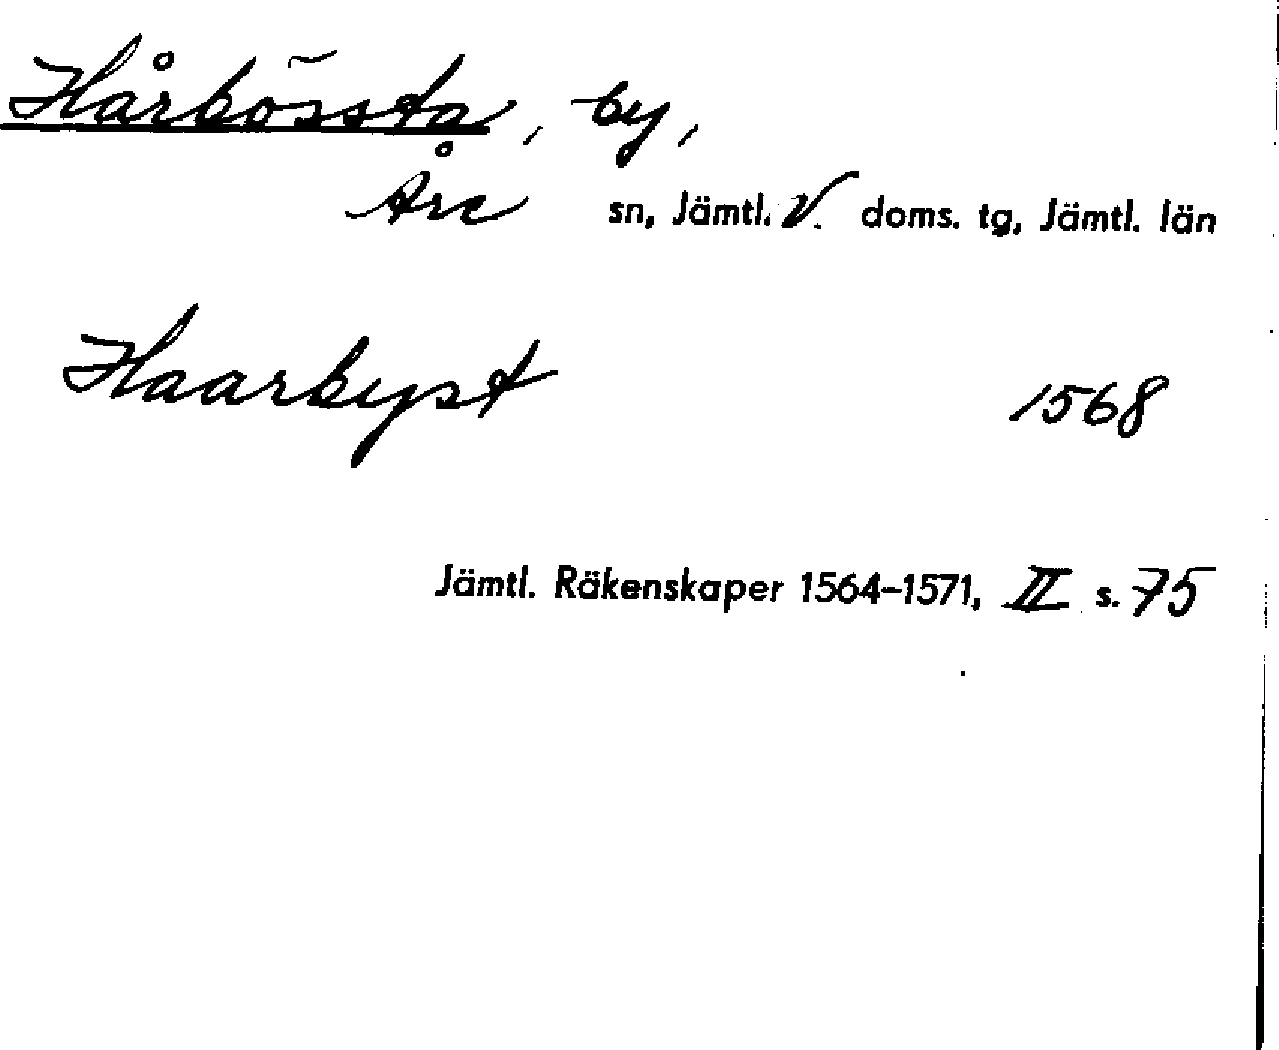 Hårbössta, by,
Åre sn, Jämtl. V. doms. tg, Jämtl. län
Haarbyst 1568
Jämtl. Räkenskaper 1564-1571, II s. 75